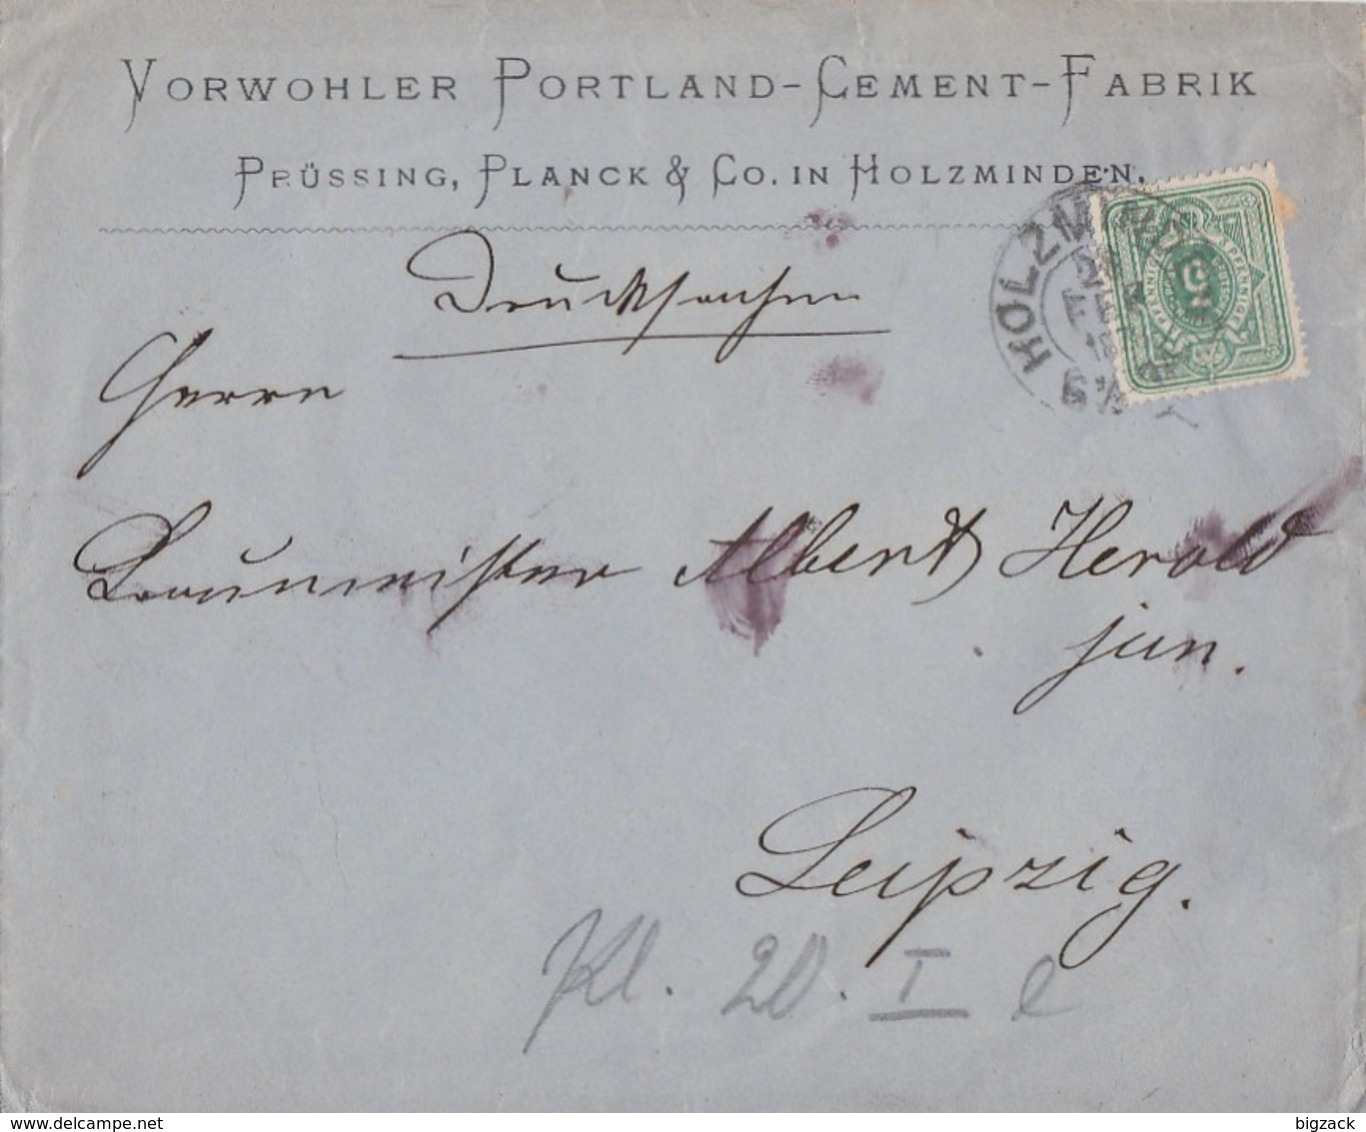 VORWOHLER PORTLAND-CEMENT-FABRIK
PRÜSSING, PLANCK & CO. IN HOLZMINDEN.
HOLZMINDEN
5
Drucksachen
Herrn
Baumeister Albert Herold
jun.
Leipzig.
Kl. 20. I e
www.delcampe.net
bigzack